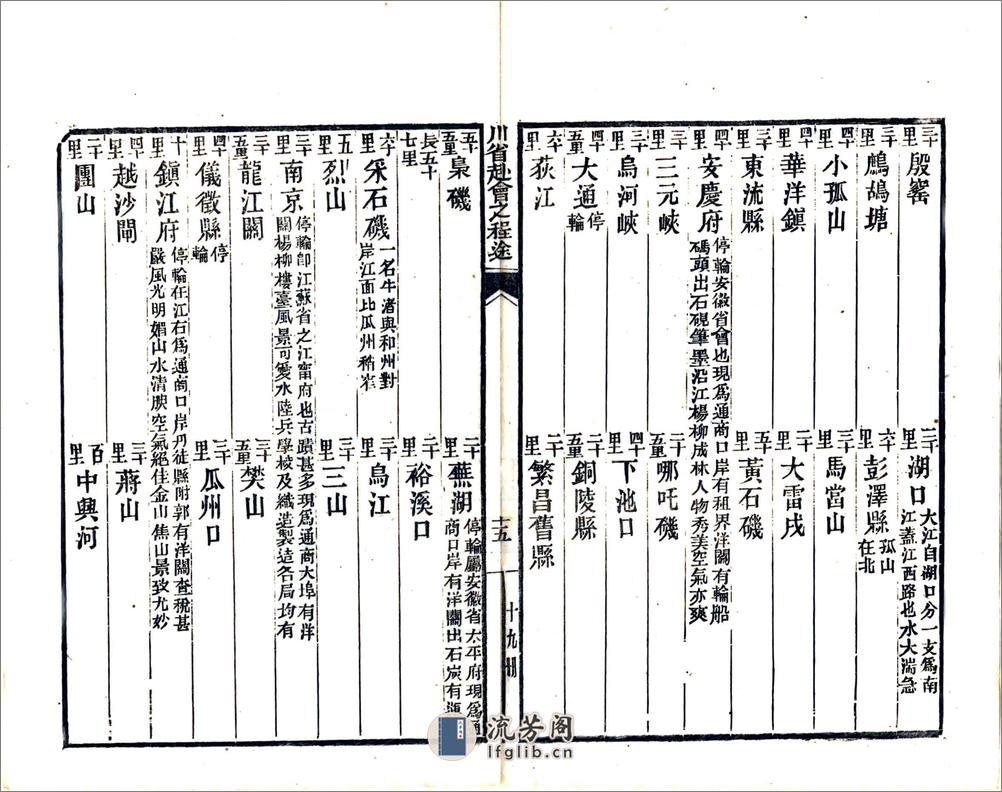 三十里 殷窰 三十里 湖口 大江自湖口分一支爲南江蓋江西路也水大湍急
三十里 鷓鴣塘 六十里 彭澤縣 孤山在北
四十里 小孤山 三十里 馬當山
四十里 華洋鎮 二十里 大雷戌
三十里 東流縣 五十里 黃石磯
四十里 安慶府 停輪安徽省會也現爲通商口岸有租界洋關有輪船碼頭出石硯筆墨沿江楊柳成林人物秀美空氣亦爽
三十里 三元峽 二十五里 哪吒磯
三十里 烏河峽 四十里 下池口
四十五里 大通 停輪 二十五里 銅陵縣
六十里 荻江 二十里 繁昌舊縣
川省赴會之程途
十五
十九册
五十五里 梟磯 二十里 蕪湖 停輪屬安徽省太平府現爲通商口岸有洋關出石炭有
長五十七里 二十里 裕溪口
六十里 采石磯 一名牛渚與和州對岸江面比瓜州稍窄 三十里 烏江
五里 烈山 三十里 三山
三十里 南京 停輪卽江蘇省之江甯府也古蹟甚多現爲通商大埠有洋關楊柳樓臺風景可愛水陸兵學校及織造製造各局均有
二十五里 龍江關 三十五里 樊山
四十里 儀徵縣 停輪 三十里 瓜州口
十里 鎮江府 停輪在江右爲通商口岸丹徒縣附郭有洋關查稅甚嚴風光明媚山水清腴空氣絕佳金山焦山景致尤妙
四十里 越沙閘 三十里 蔣山
二十里 團山 百里 中興河
流芳阁
lfglib.cn